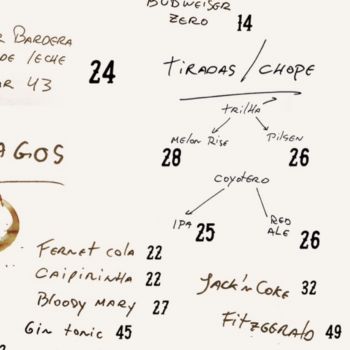 BUDWEISER
ZERO 14
BARDERA
DE LECHE 24
43
TIRADAS/CHOPE
TRILHA
MELON RISE 28
PILSEN 26
COYOTERO
IPA 25
RED
ALE 26
AGOS
FERNET COLA 22
CAIPIRINHA 22
BLOODY MARY 27
GIN TONIC 45
JACK'N COKE 32
FITZGERALD 49